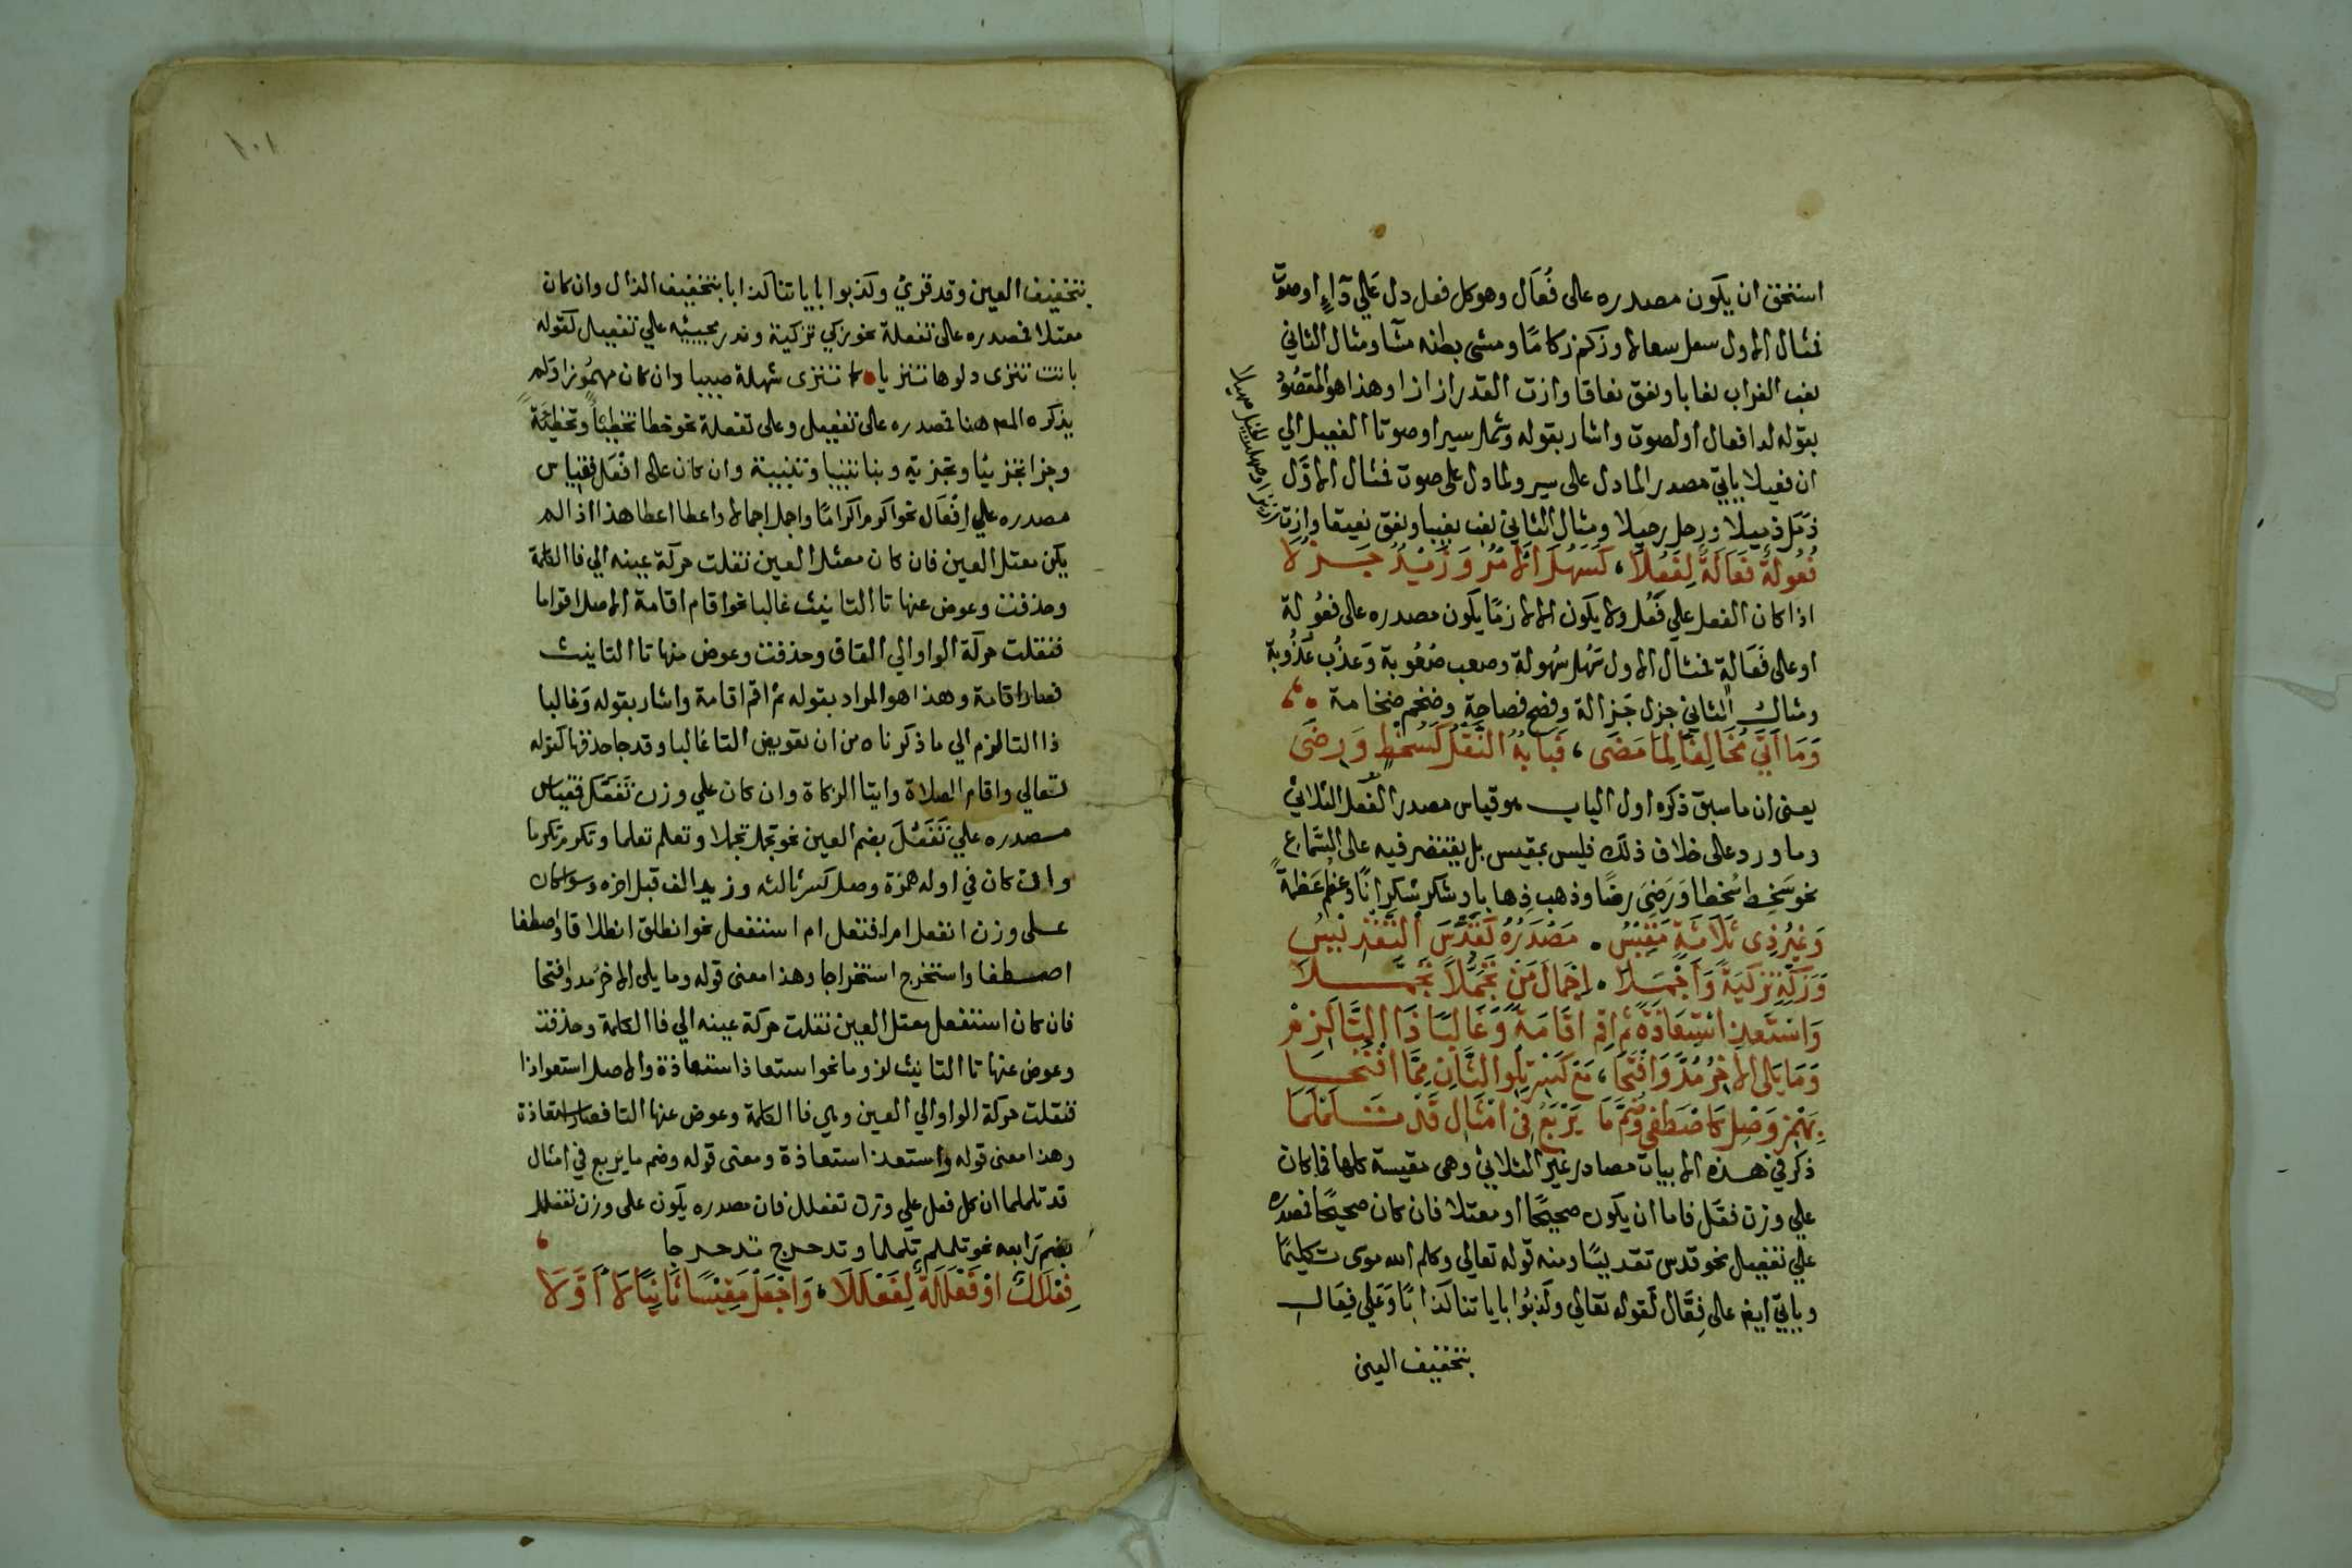 استحق ان يكون مصدره على فُعَال وهو كل فعل دل علي دآءٍ او صوت
فمثال الاول سعل سعالا وزكم زكامًا ومشى بطنه مشا ومثال الثاني
نعب الغراب نعابا ونعق نعاقا وازت القدر ازازا وهذا هو المقصود
بقوله لدا فعال او لصوت واشار بقوله وشمل سيرا وصوتا الفعيل الي
ان فعيلا يأتي مصدر المادل على سير ولمادل على صوت فمثال الاوّل
ذمّل ذميلا ورحل رحيلا ومثال الثاني نعب نعيبا ونعق نعيقا وازت
ازيزا وصهلت الخيل صهيلا
فُعُولَةٌ فَعَالَةٌ لِفَعُلَا، كَسَهُلَ الامْرُ وَزَيْدٌ جَزُلا
اذا كان الفعل علي فَعُل ولا يكون الا لازمًا يكون مصدره على فعُولة
او على فَعَالة فمثال الاول سَهُل سُهولة وصعب صُعُوبة وَعذُب عُذُوبة
ومثال الثاني جزل جَزالة وفصح فصاحة وضخم ضخامة
وَمَا اَتَي مُخَالِفًا لِمَا مَضَى، فَبَابُهُ النَّقْلُ كَسُخْطٍ وَرِضَى
يعنى ان ما سبق ذكره اول الباب هو قياس مصدر الفعل الثلاثي
وما ورد على خلاف ذلك فليس بمقيس بل يقتصر فيه على السَّماع
نحو سَخِط سُخطا وَرَضِىَ رِضًا وذهب ذِهابا وشكر شكرانًا وعظم عَظمةً
وَغَيْرُ ذِى ثَلَاثَةٍ مَقِيْسُ . مَصْدَرُهُ كَقُدِّسَ التَّقْدِيْسُ
وَزَكِّهِ تَزْكِيَةً وَاَجْمِلَا . اِجْمَالَ مَنْ تَجَمُّلاً تَجَمَّلَا
وَاسْتَعِذِ اسْتِعَاذَةً ثُمَّ اَقِمْ اِقَامَةً وَغَالِبًا ذَا التَّا لَزِمْ
وَمَا يَلِى الاخِرُ مُدَّ وَافْتَحَا، مَعْ كَسْرِ تِلْوِ الثَّانِ مِمَّا افْتُتِحَا
بِهَمْزِ وَصْلٍ كَاصْطَفَى وَضُمَّ مَا يَرْبَعُ فِى امْثَالِ قَدْ تَلَمْلَمَا
ذكر في هذه الابيات مصادر غير الثلاثي وهى مقيسة كلها فما كان
علي وزن فعّل فاما ان يكون صحيحًا او معتلا فان كان صحيحًا فمصدره
علي تفعيل نحو قدس تقديسًا ومنه قوله تعالي وكلم الله موسى تكليمًا
ويأتي ايض على فِعَّال كقوله تعالي وكَذبُوا بايا تنا كذابًا وَعَلي فِعَال
بتخفيف العين
١٠١
بتخفيف العين وقد قري وكذبوا بايا تنا كذابا بتخفيف الذال وان كان
معتلا فمصدره على تفعلة نحو زكي تزكية وندر مجيئه علي تفعيل كقوله
باتت تنزى دلوها تنزيا كا تنزى شهلة صبيا وان كان مهمُوزا ولم
يذكره المص هنا فمصدره على تفعيل وعلى تفعلة نحو خطا تخطيئًا وتخطئةً
وجزا تجزئيا وتجزية ونبا تنبيا وتنبية وان كان على افعَل فقياس
مصدره علي اِفْعَال نحو اكرم اكرامًا واجمل اجمالا واعطا اعطا هذا اذا لم
يكن معتل العين فان كان معتل العين نقلت حركة عينه الي فا الكلمة
وحذفت وعوض عنها تا التانيث غالبا نحو اقام اقامة الاصل اقواما
فنقلت حركة الواو الي القاف وحذفت وعوض منها تا التانيث
فصار اقامة وهذا هو المراد بقوله ثم اقم اقامة واشار بقوله وَغالبا
ذا التا لزم الي ما ذكرناه من ان تعويض التا غالبا وقد جا حذفها كقوله
تعالي واقام الصلاة وايتا الزكاة وان كان علي وزن تَفَعَّل فقياس
مصدره علي تَفَعُّلَ بضم العين نحو تجمل تجملا وتعلم تعلما وتكرم تكرما
وان كان في اوله همزة وصل كسر ثالثه وزيد الف قبل اخره وسوا كان
على وزن انفعل ام افتعل ام استفعل نحو انطلق انطلاقا واصطفا
اصطفا واستخرج استخراجا وهذا معنى قوله وما يلي الاخر مُد وافتحا
فان كان استفعل معتل العين نقلت حركة عينه الي فا الكلمة وحذفت
وعوض عنها تا التانيث لزوما نحو استعاذ استعاذة والاصل استعواذا
فنقلت حركة الواو الي العين وهي فا الكلمة وعوض عنها التا فصار استعاذة
وهذا معنى قوله واستعذ استعاذة ومعنى قوله وضم ما يربع في امثال
قد تلملما ان كل فعل علي وزن تفعلل فان مصدره يكون على وزن تفعلل
بضم رَابعه نحو تلملم تلملما وتدحرج تدحرجا
فِعْلَالٌ اوْ فَعْلَلَةٌ لِفَعْلَلَا، وَاجْعَلْ مَقِيْسًا ثَانِيًا لا اَوَّلَا